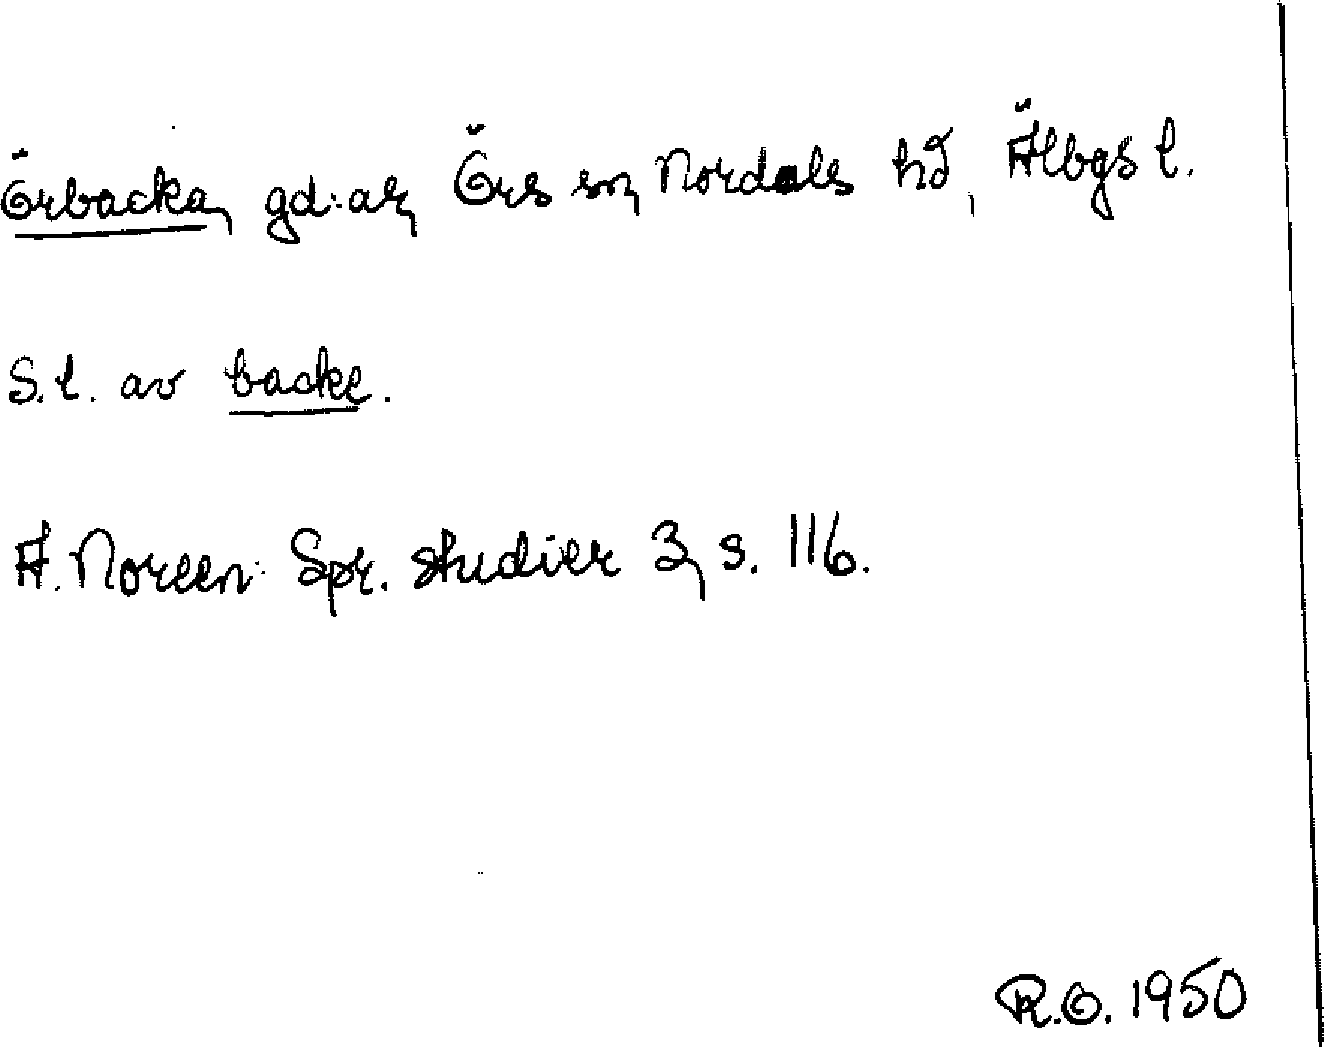 Örbacka, gd:ar, Örs sn, Nordals hd, Älbgs l.
S.l. av backe.
A. Noreen: Spr. studier 3, s. 116.
R.O. 1950